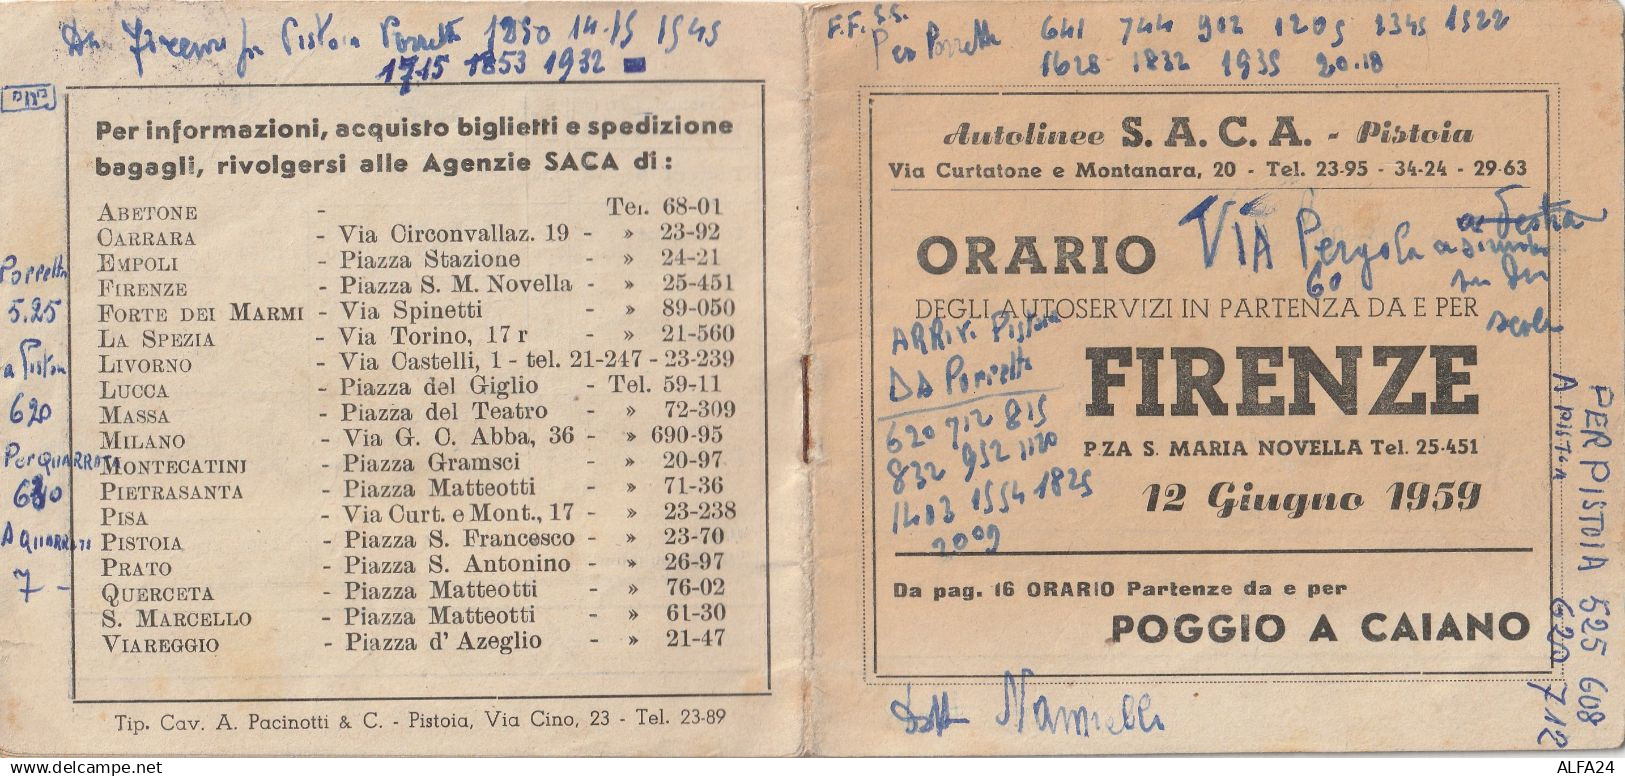 Da Firenze per Pistoia Porretta 1850 14.15 1545
1715 1853 1932
Per informazioni, acquisto biglietti e spedizione
bagagli, rivolgersi alle Agenzie SACA di :
ABETONE - Tel. 68-01
CARRARA - Via Circonvallaz. 19 - » 23-92
EMPOLI - Piazza Stazione - » 24-21
FIRENZE - Piazza S. M. Novella - » 25-451
FORTE DEI MARMI - Via Spinetti - » 89-050
LA SPEZIA - Via Torino, 17 r - » 21-560
LIVORNO - Via Castelli, 1 - tel. 21-247 - 23-239
LUCCA - Piazza del Giglio - Tel. 59-11
MASSA - Piazza del Teatro - » 72-309
MILANO - Via G. C. Abba, 36 - » 690-95
MONTECATINI - Piazza Gramsci - » 20-97
PIETRASANTA - Piazza Matteotti - » 71-36
PISA - Via Curt. e Mont., 17 - » 23-238
PISTOIA - Piazza S. Francesco - » 23-70
PRATO - Piazza S. Antonino - » 26-97
QUERCETA - Piazza Matteotti - » 76-02
S. MARCELLO - Piazza Matteotti - » 61-30
VIAREGGIO - Piazza d' Azeglio - » 21-47
Tip. Cav. A. Pacinotti & C. - Pistoia, Via Cino, 23 - Tel. 23-89
Porretta
5.25
a Pistoia
620
Per QUARRATA
A QUARRATA
7 -
F.F. S.S.
Per Porretta 641 744 902 1205 1345 1522
1628 1832 1935 20.18
Autolinee S. A. C. A. - Pistoia
Via Curtatone e Montanara, 20 - Tel. 23-95 - 34-24 - 29-63
ORARIO
VIA Pergola
60
DEGLI AUTOSERVIZI IN PARTENZA DA E PER
FIRENZE
P.ZA S. MARIA NOVELLA Tel. 25-451
12 Giugno 1959
ARRIV. Pistoia
DA Porretta
620 712 815
832 952 1120
1403 1554 1825
2009
Da pag. 16 ORARIO Partenze da e per
POGGIO A CAIANO
Dott Nannelli
PER PISTOIA 525 608
A PISTOIA 620 712
ALFA24
delcampe.net